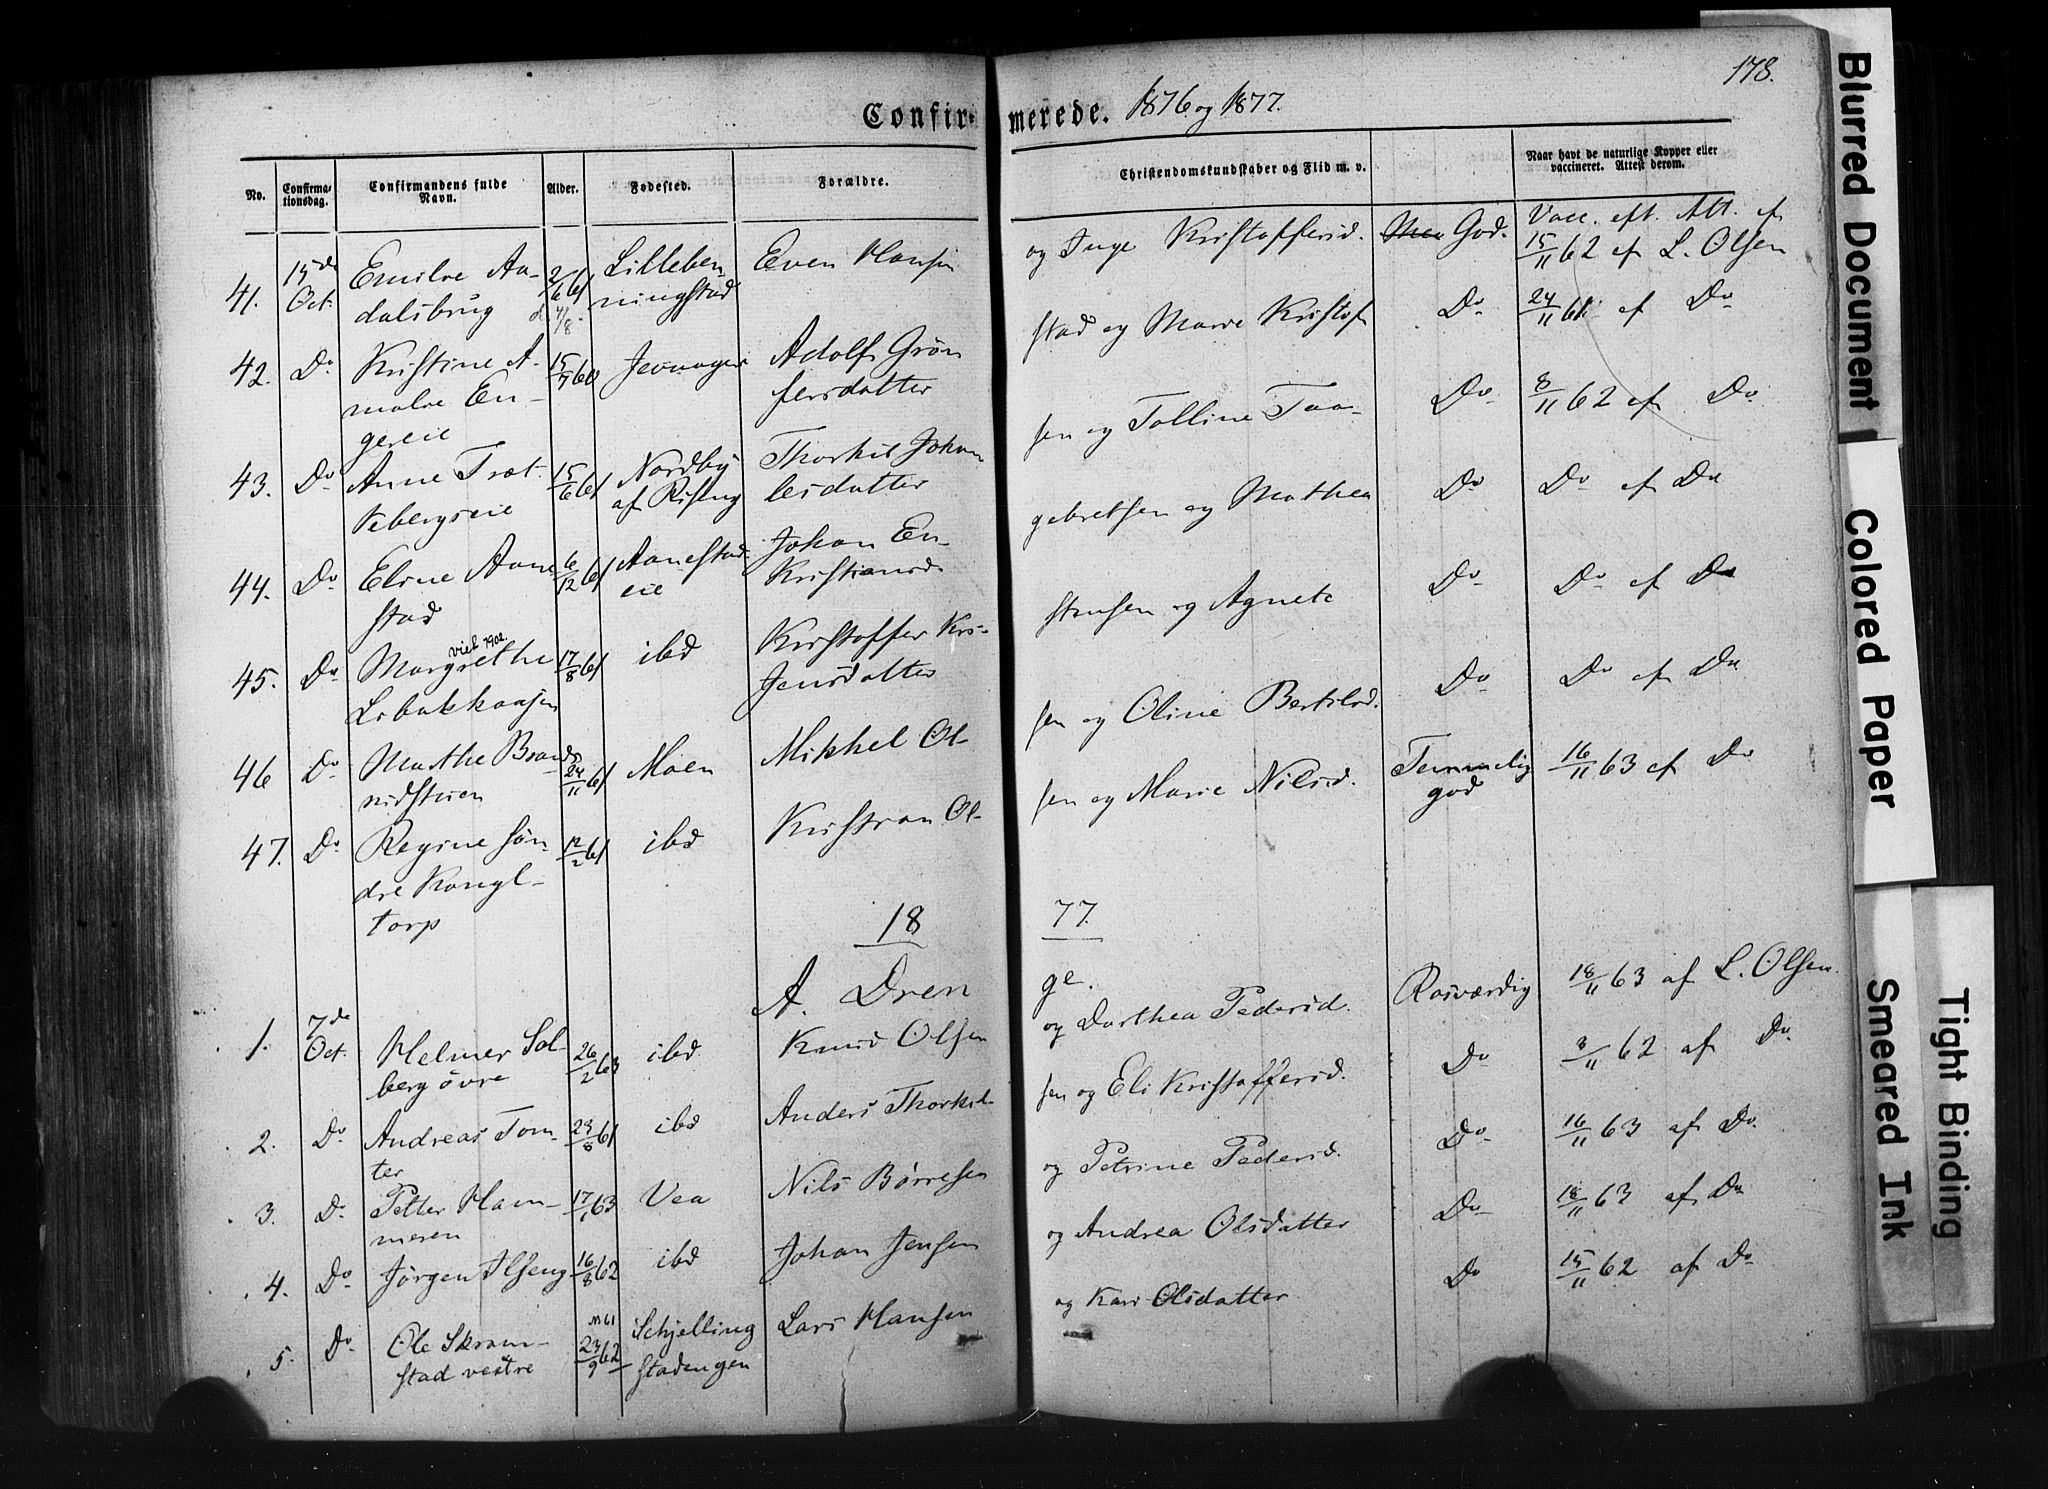 178.
Confirmerede. 1876 og 1877.
No. Confirmationsdag. Confirmandens fulde Navn. Alder. Fødested. Forældre. Christendomskundskaber og Flid m. v. Naar havt de naturlige Kopper eller vaccineret. Attest derom.
41. 15de Oct. Emilie Aadalsbrug 2/6 61 d. 4/8. Lilleben- Even Hansen og Inge Kristoffersd. God. Vacc. eft. Att. af 15/11 62 af L. Olsen
ningstad
42. Do Kristine A- 15/7 60 Adolf Grøn stad og Marie Kristof Do 24/11 61 af Do
malie En- fersdatter
gereie
43. Do Anne Træt- 15/6 61 Nordby af Thorkil Johan sen og Tolline Taa- Do 8/11 62 af Do
tebergseie lesdatter
44. Do Eline Aane 6/12 61 Aanestad Johan En- gebretsen og Mathea Do Do af Do
stad eie Kristiansd.
viet 1902.
45. Do Margrethe 17/8 61 ibd Kristoffer Kri- stensen og Agnete Do Do af Do
Libakhaasen Jensdatter
46 Do Marthe 24/11 61 Moen Mikkel Ol- sen og Oline Bertilsd. Do Do af Do
47. Do Regine Søn- 12/2 61 ibd Kristian Ol- sen og Marie Nilsd. Temmelig god 16/11 63 af Do
dre Kongl-
torp
18 77.
A. Dren ge.
1. 7de Oct. Helmer Sol- 26/2 63 ibd Knud Olsen og Dorthea Pedersd. Rosværdig 18/11 63 af L. Olsen.
berg øvre
2. Do Andreas Tom- 23/8 61 ibd Anders Thorkil- sen og Eli Kristoffersd. Do 3/11 62 af Do
ter
3. Do Petter Ham- 17/1 63 Vea Nils Børresen og Petrine Pedersd. Do 16/11 63 af Do.
meren
4. Do Jørgen Ilseng 16/8 62 ibd Johan Jensen og Andrea Olsdatter Do 18/11 63 af Do
5. Do Ole Skram- 61 23/9 62 Schjelling Lars Hansen og Kari Olsdatter Do 15/11 62 af Do
stad vestre stadengen
Blurred Document
Colored Paper
Smeared Ink
Tight Binding